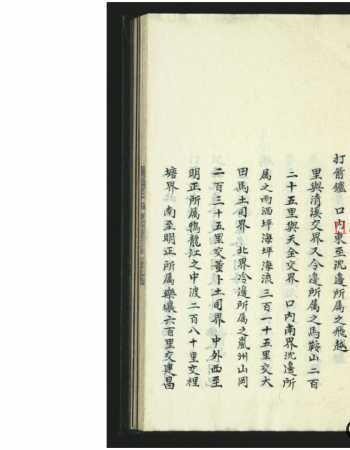 打箭爐 口內東至沈邊所屬之飛越
里與清溪交界又令邊所屬之馬鞍山二百
二十五里與天全交界 口內南界沈邊所
屬之雨洒坪海坪海流三百一十五里交大
田馬土司界 北界冷邊所屬之嵐州山岡
二百三十五里交董卜土司界 中外西至
明正所屬鴨龍江之中渡二百八十里交裡
塘界 南至明正所屬樂壤六百里交建昌